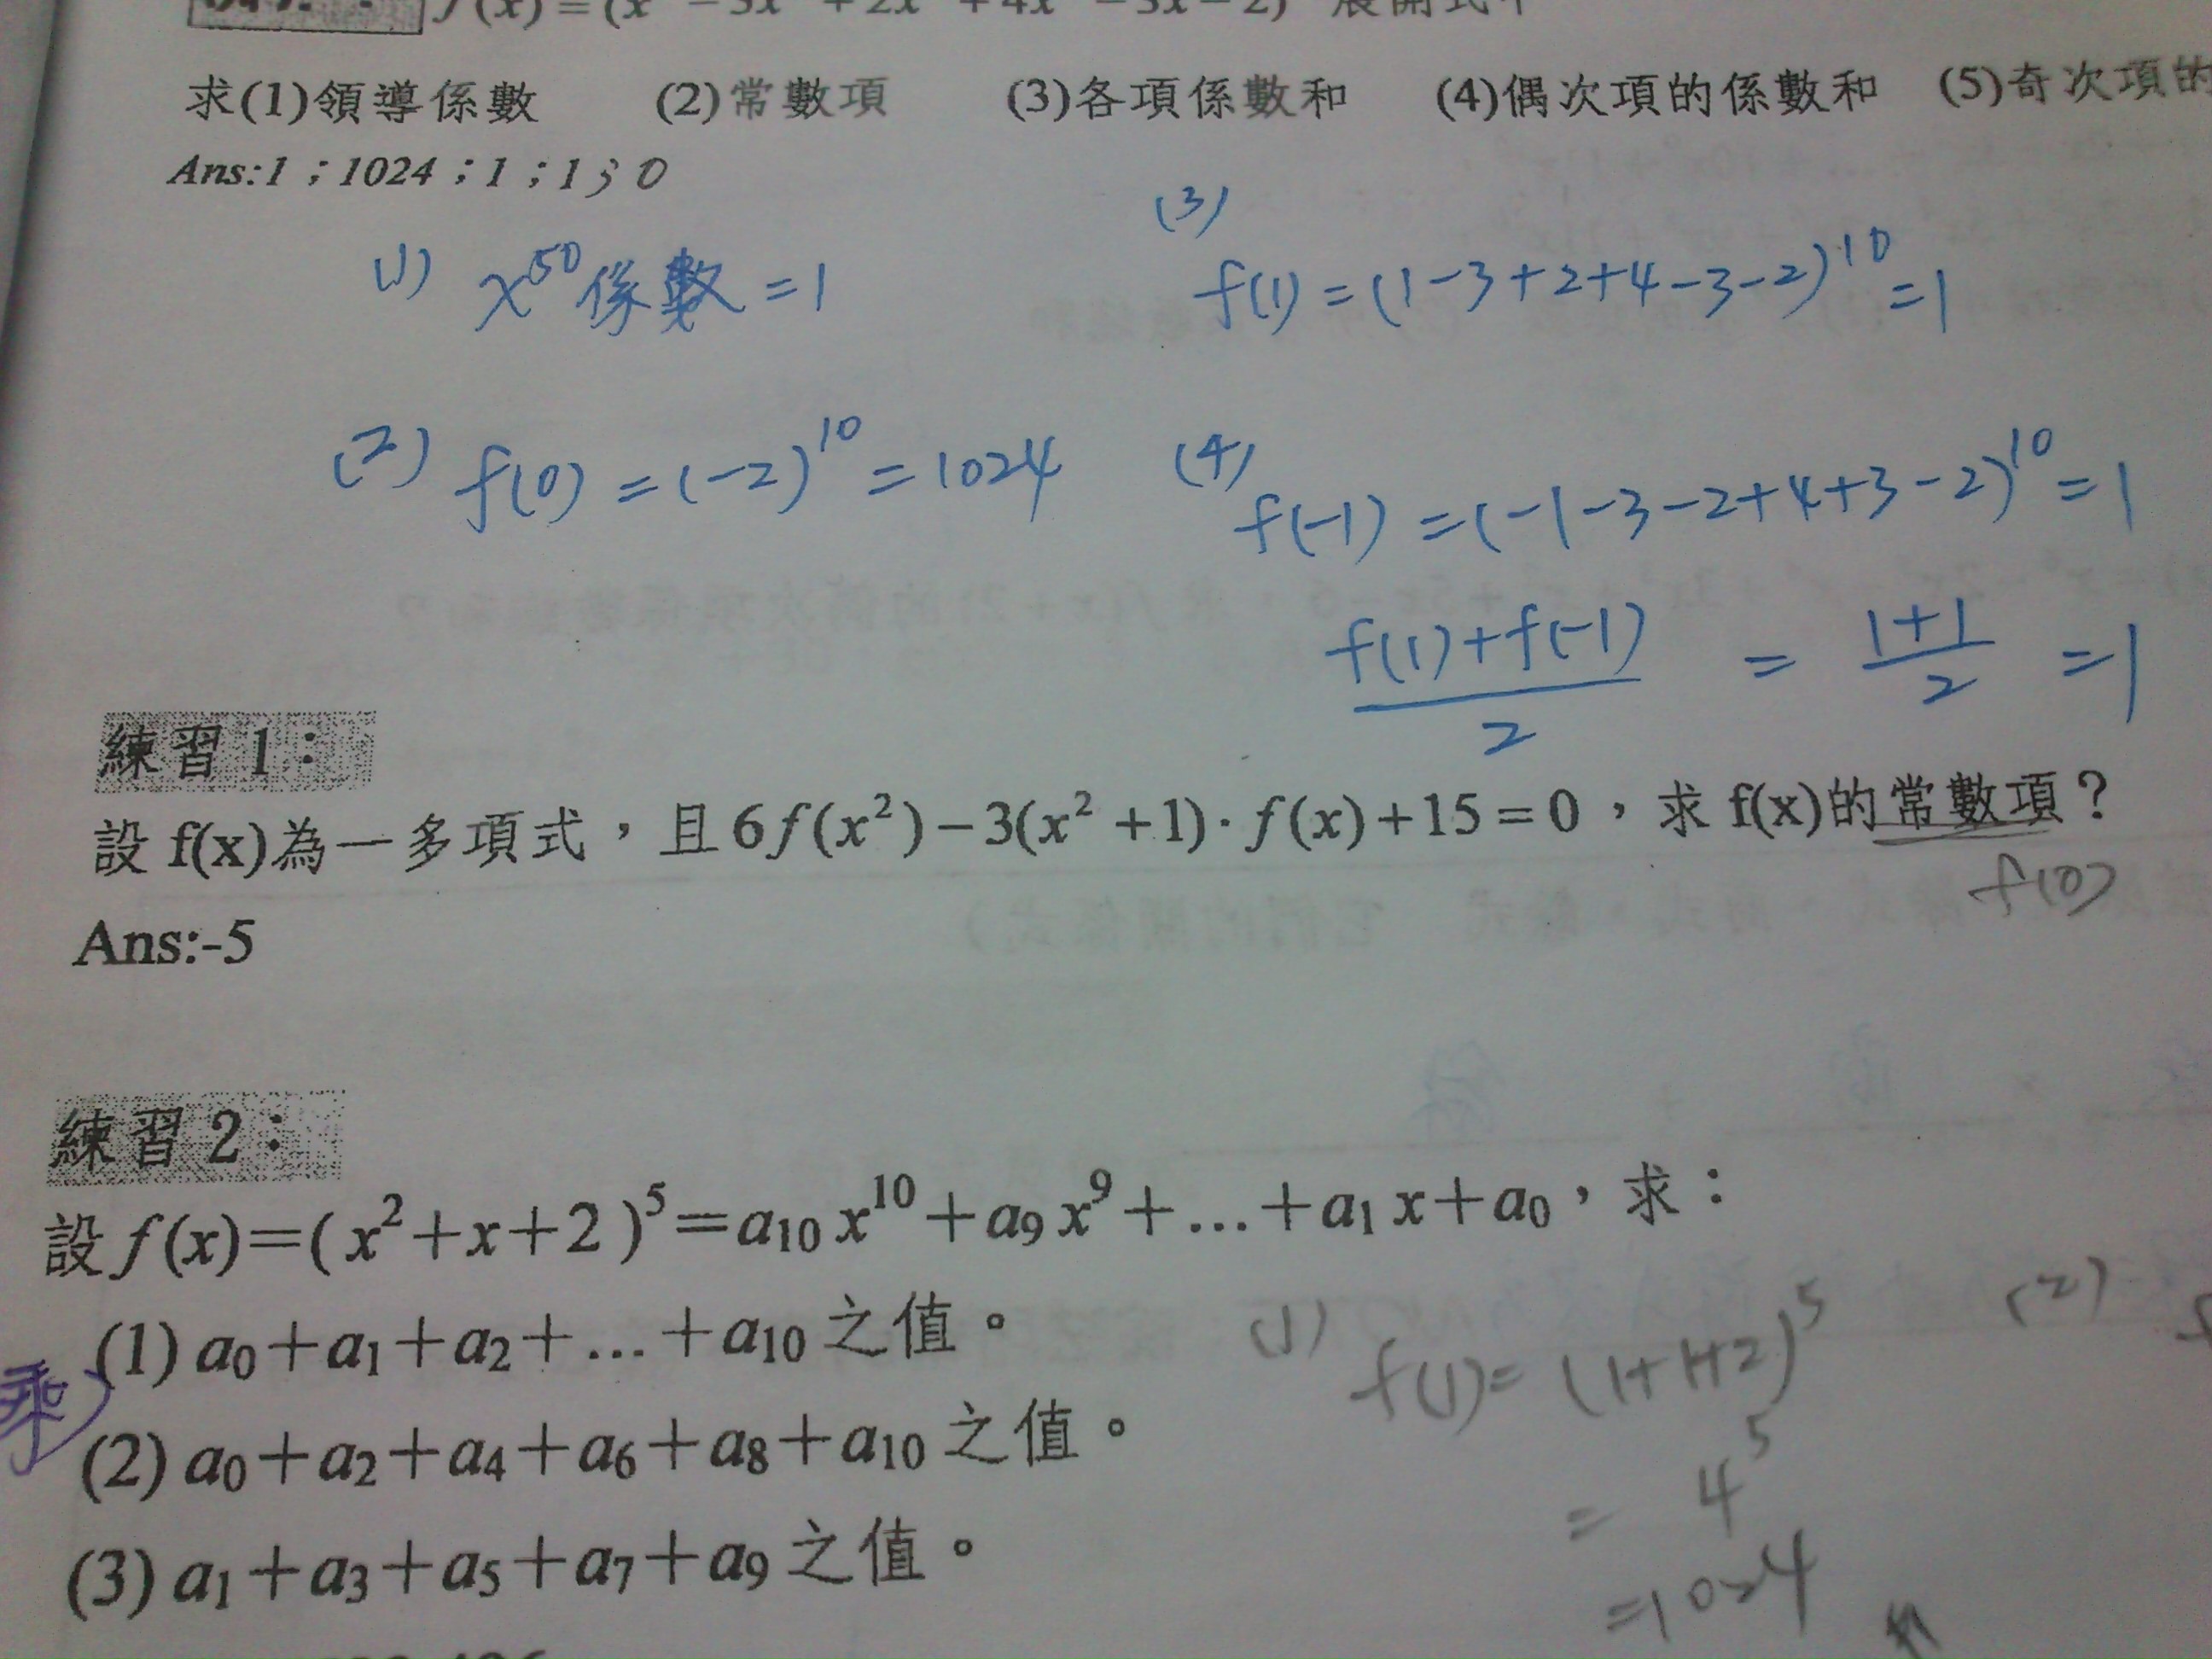 f(x)=(x −3x +2x +4x −3x−2) 展開式中
求(1)領導係數 (2)常數項 (3)各項係數和 (4)偶次項的係數和 (5)奇次項的
Ans:1；1024；1；1；0
(1) x⁵⁰係數=1
(3) f(1)=(1-3+2+4-3-2)¹⁰=1
(2) f(0)=(-2)¹⁰=1024
(4) f(-1)=(-1-3-2+4+3-2)¹⁰=1
f(1)+f(-1)/2 = 1+1/2 =1
練習1：
設 f(x)為一多項式，且6f(x²)−3(x²+1)·f(x)+15=0，求 f(x)的常數項？
f(0)
Ans:-5
練習2：
設f(x)=(x²+x+2)⁵=a₁₀x¹⁰+a₉x⁹+…+a₁x+a₀，求：
(1) a₀+a₁+a₂+…+a₁₀之值。
(1) f(1)=(1+1+2)⁵
(2)
乘
(2) a₀+a₂+a₄+a₆+a₈+a₁₀之值。
=4⁵
(3) a₁+a₃+a₅+a₇+a₉之值。
=1024